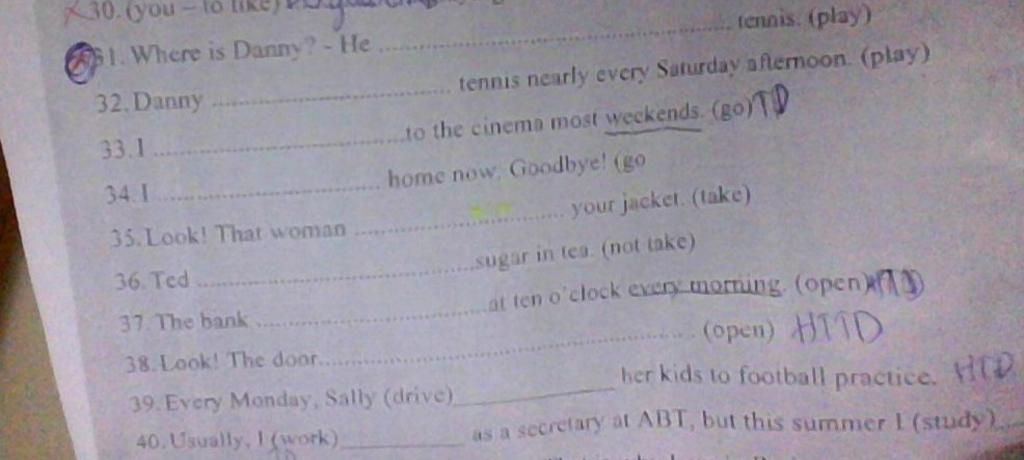 30. (you – to like)
31. Where is Danny? - He ........................ tennis. (play)
32. Danny ........................ tennis nearly every Saturday afternoon. (play)
33. I ........................ to the cinema most weekends. (go) TD
34. I ........................ home now. Goodbye! (go
35. Look! That woman ........................ your jacket. (take)
36. Ted ........................ sugar in tea. (not take)
37. The bank ........................ at ten o'clock every morning. (open) TD
38. Look! The door ........................ (open) HTTD
39. Every Monday, Sally (drive)____________ her kids to football practice. HTD
40. Usually, I (work)____________ as a secretary at ABT, but this summer I (study)